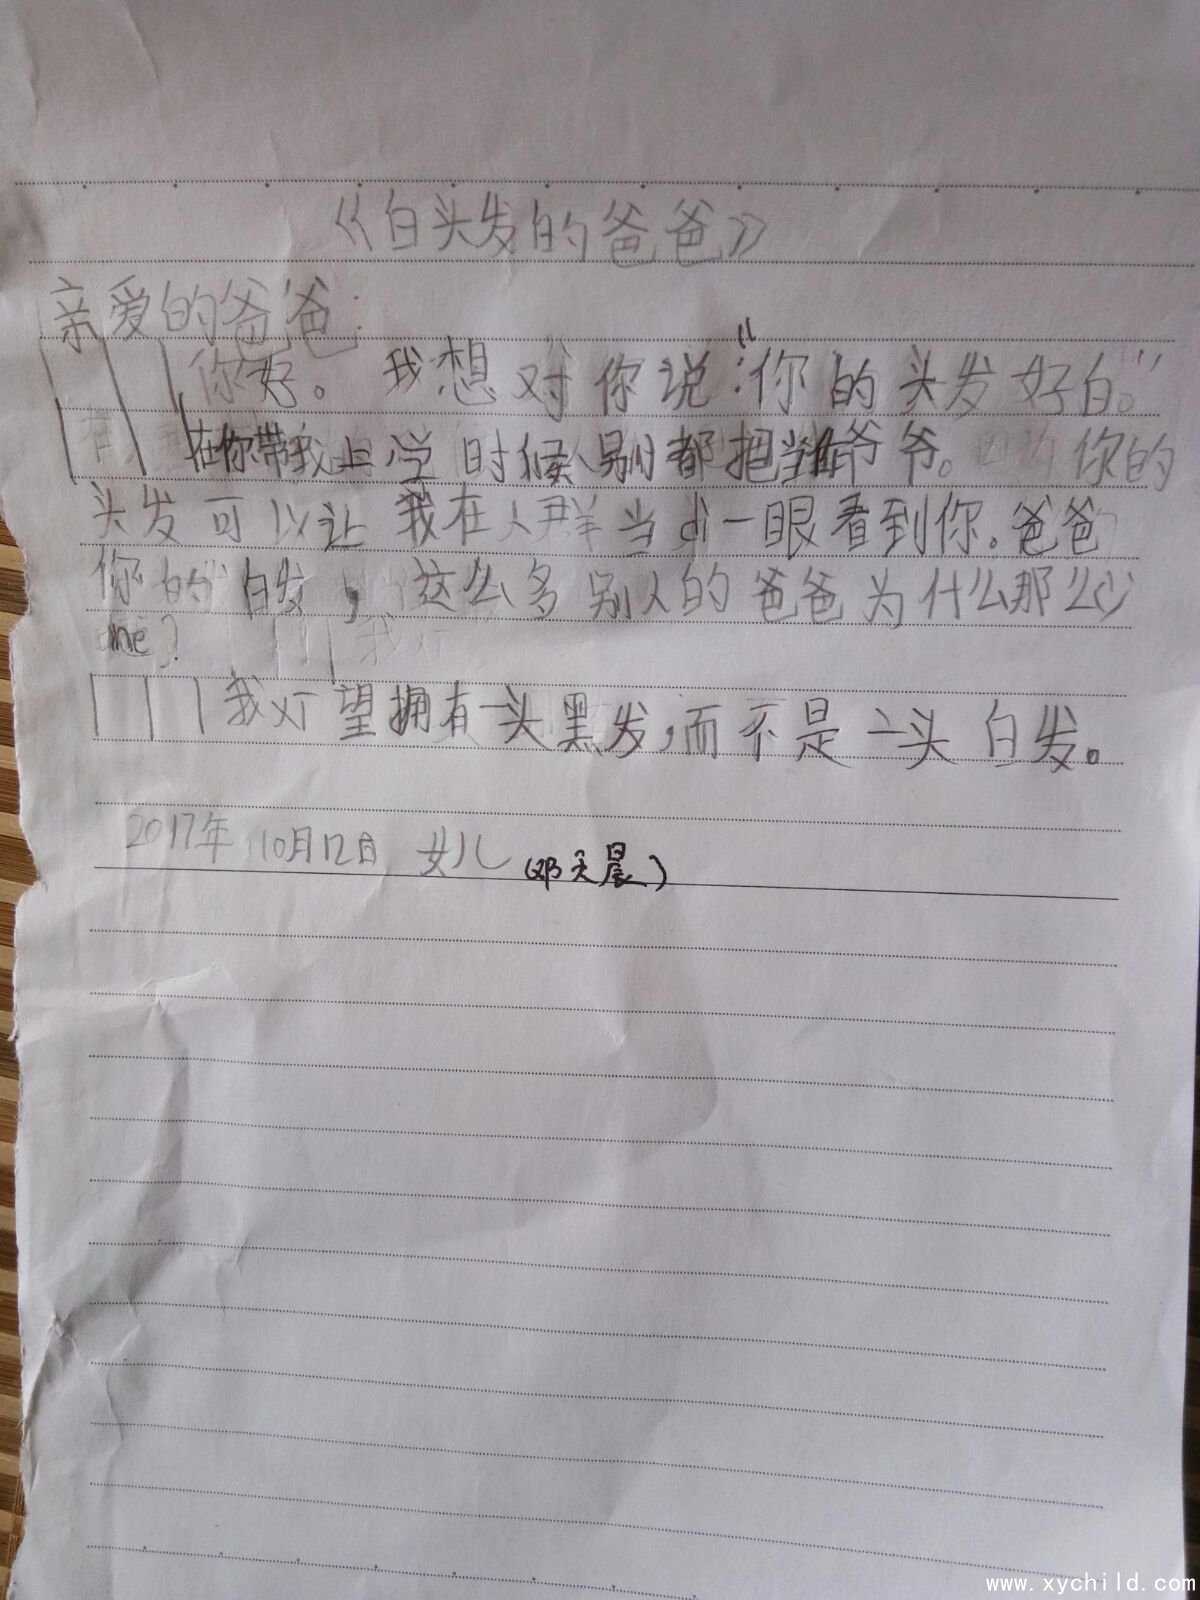 《白头发的爸爸》
亲爱的爸爸:
你好。我想对你说:“你的头发好白。”
在你带我上学时候别都把当爷爷。你的
头发可以让我在人群当di一眼看到你。爸爸
你的白发,这么多别人的爸爸为什么那么少
ne?
我望拥有一头黑发,而不是一头白发。
2017年10月12日 女儿(邓天晨)
www.xychild.com